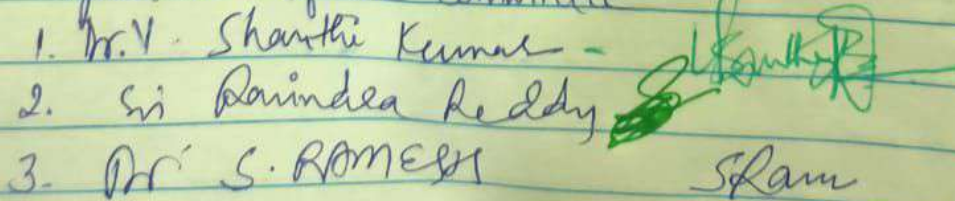 1. Dr. V. Shanthi Kumar -
2. Sri Ravindra Reddy
3. Dr S. RAMESH SRam